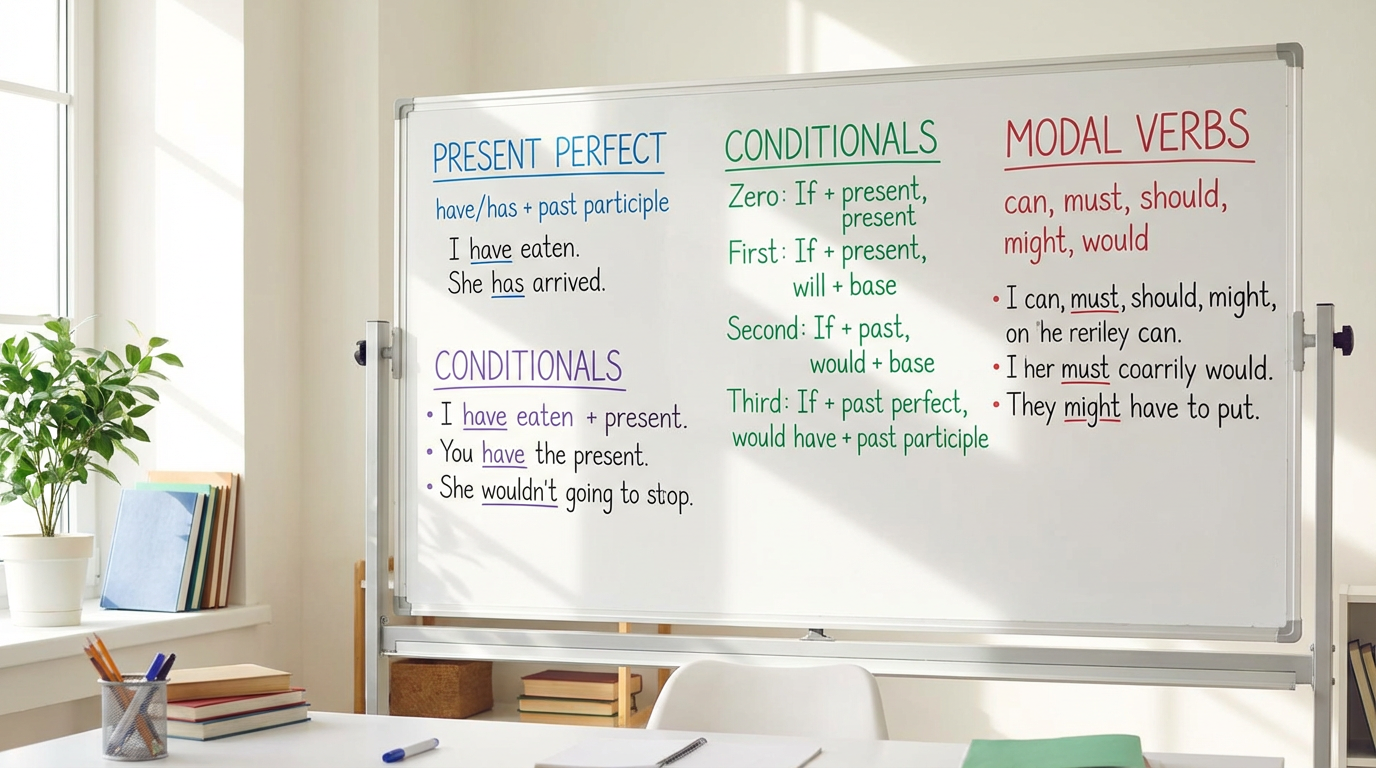 PRESENT PERFECT
have/has + past participle
I have eaten.
She has arrived.
CONDITIONALS
• I have eaten + present.
• You have the present.
• She wouldn't going to stop.
CONDITIONALS
Zero: If + present,
present
First: If + present,
will + base
Second: If + past,
would + base
Third: If + past perfect,
would have + past participle
MODAL VERBS
can, must, should,
might, would
• I can, must, should, might,
on "he reriley can.
• I her must coarrily would.
• They might have to put.